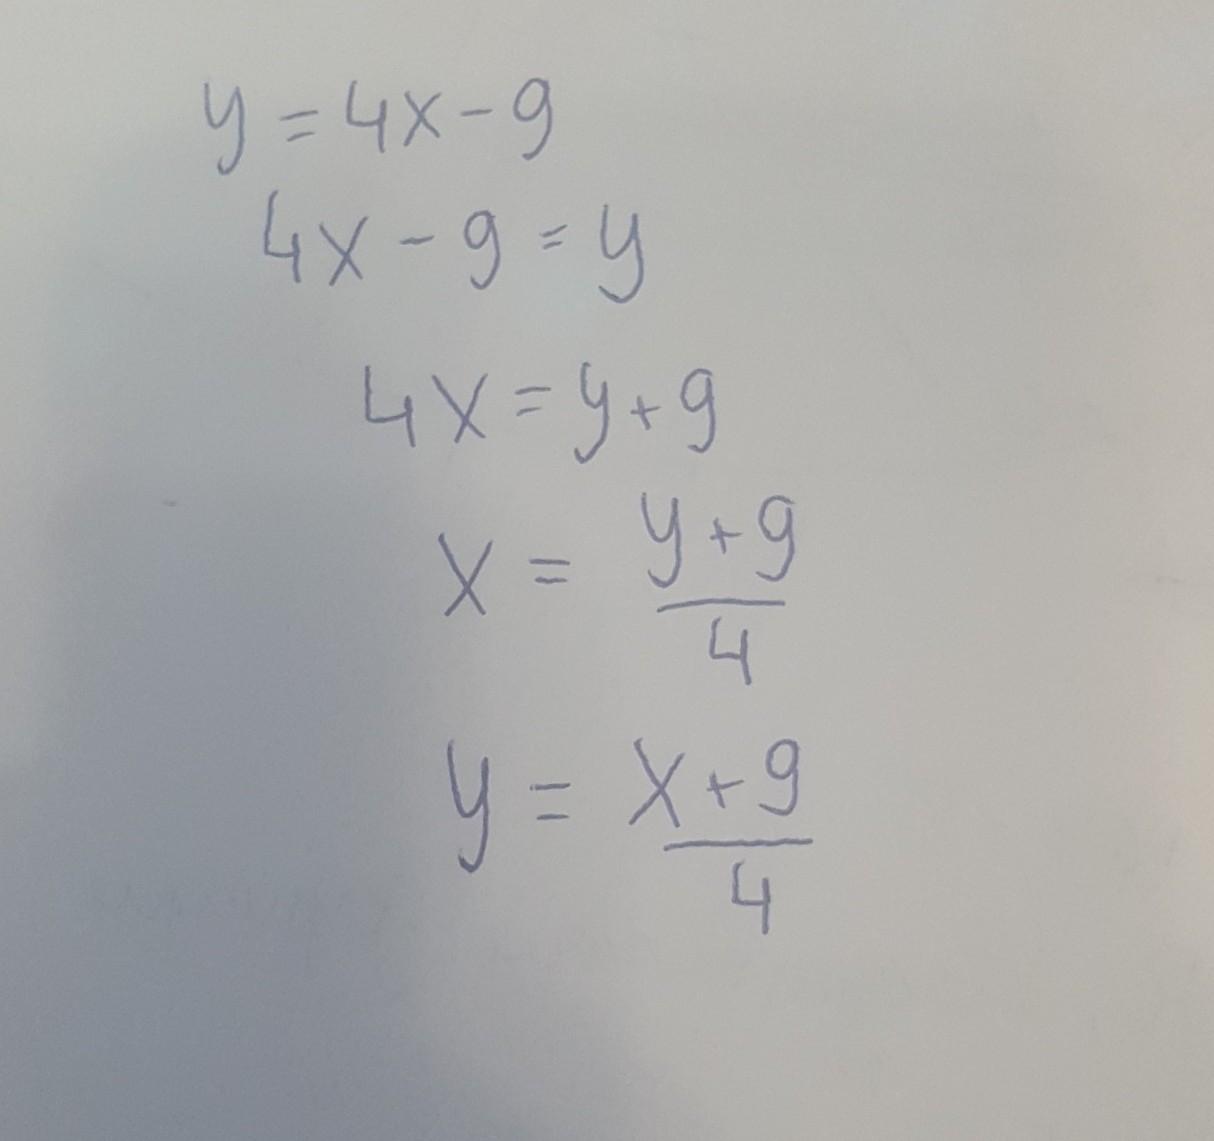 y = 4x - 9
4x - 9 = y
4x = y + 9
x = (y + 9)/4
y = (x + 9)/4